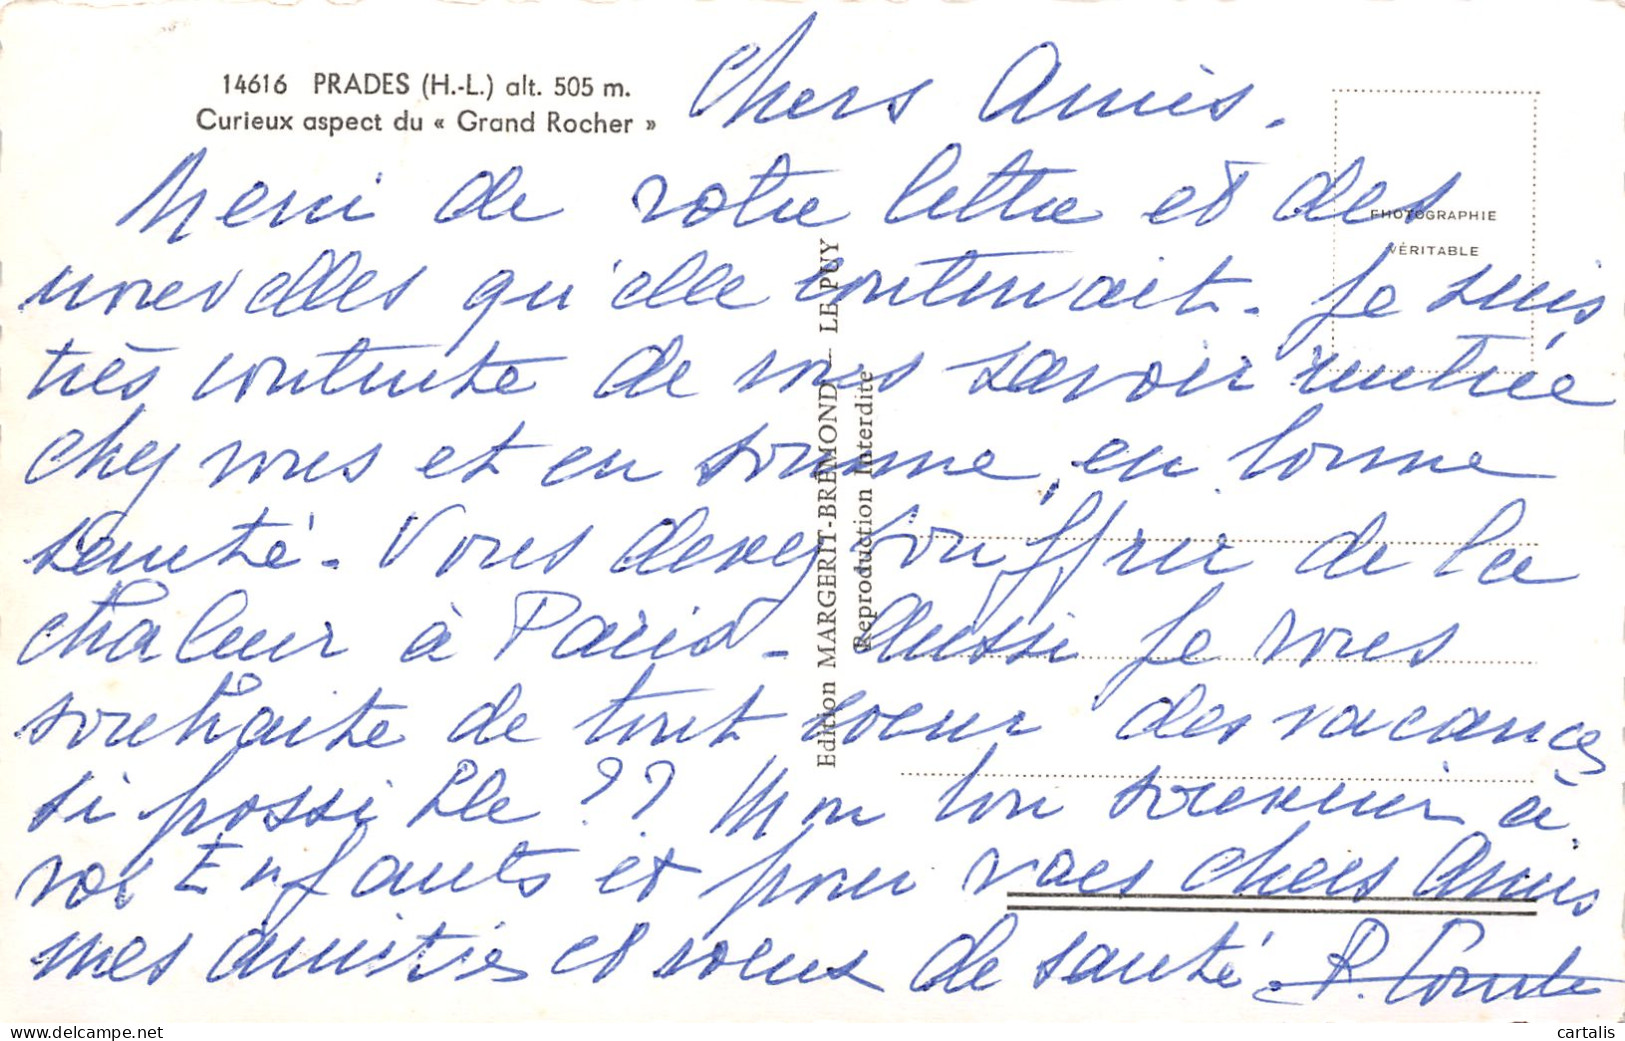 14616 PRADES (H.-L.) alt. 505 m.
Curieux aspect du « Grand Rocher »
PHOTOGRAPHIE
VÉRITABLE
Edition MARGERIT-BREMOND - LE PUY
Reproduction Interdite
Chers Amis.
Merci de votre lettre et des
nouvelles qu'elle contenait. Je suis
très contente de vous savoir rentrée
chez vous et en somme, en bonne
santé. Vous devez souffrir de la
chaleur à Paris - Aussi je vous
souhaite de tout coeur des vacances
si possible ?? Mon bon souvenir à
vos Enfants et pour vous chers Amis
mes amitiés et voeux de santé. P. Comte
cartalis
www.delcampe.net